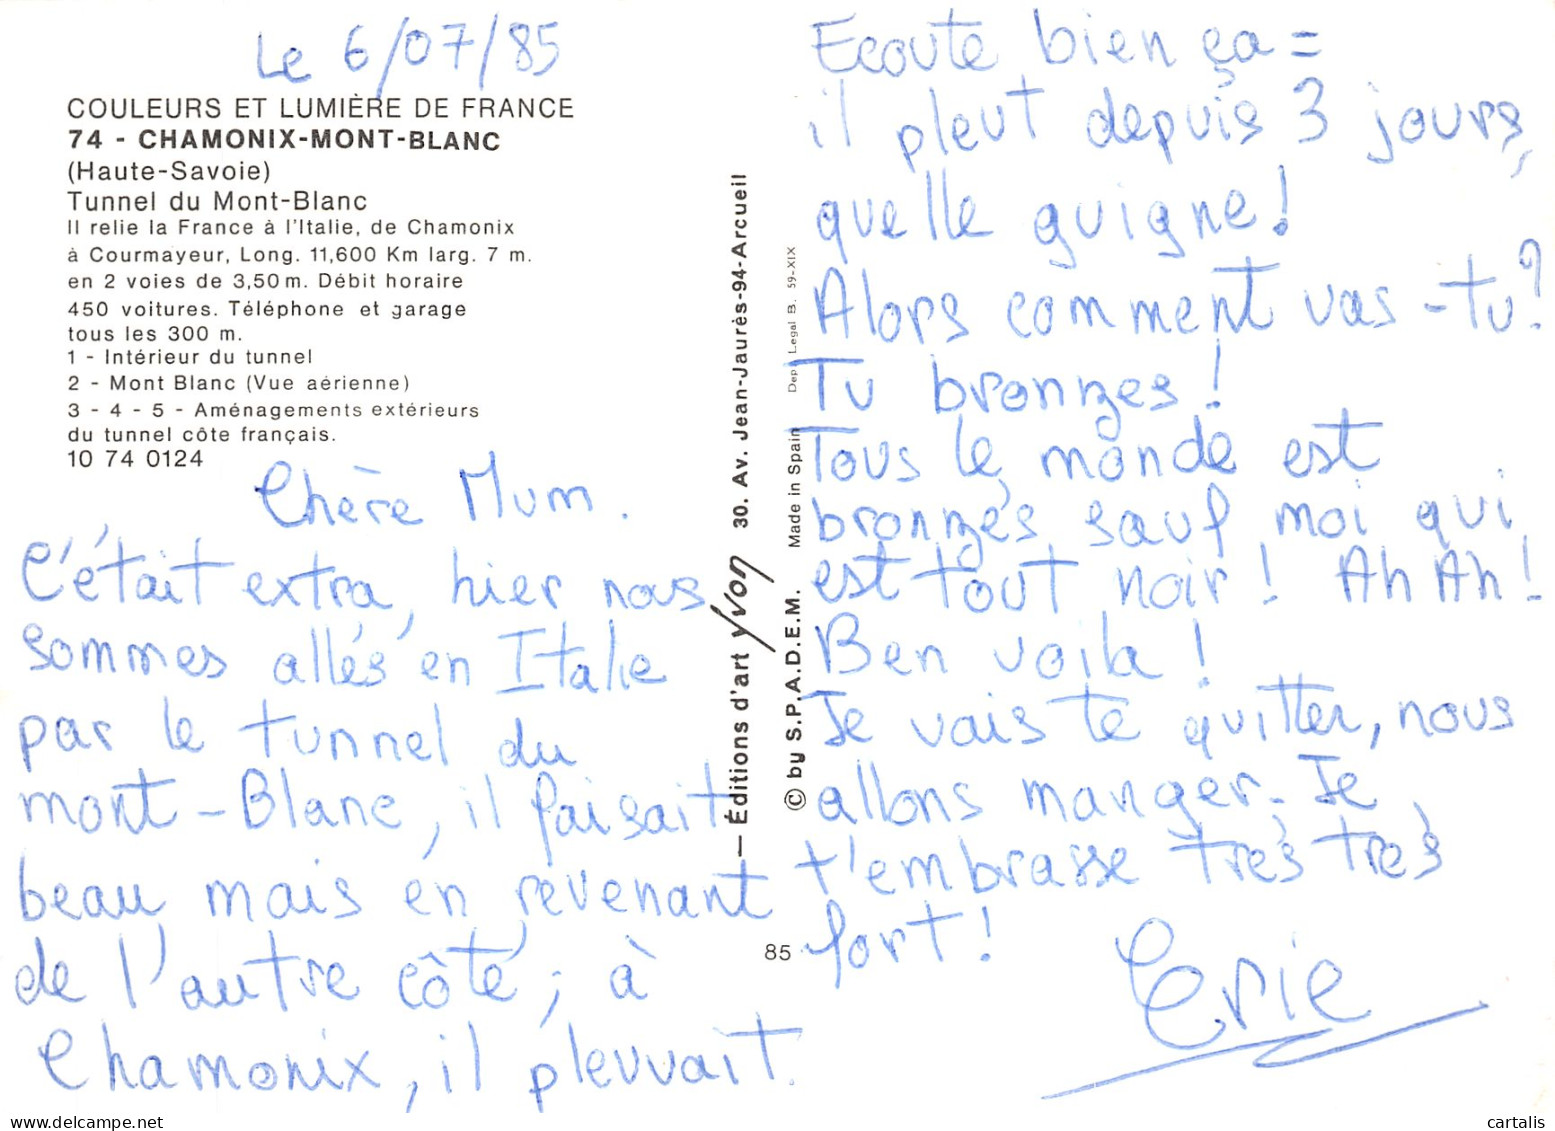 Le 6/07/85
COULEURS ET LUMIÈRE DE FRANCE
74 - CHAMONIX-MONT-BLANC
(Haute-Savoie)
Tunnel du Mont-Blanc
Il relie la France à l'Italie, de Chamonix
à Courmayeur, Long. 11,600 Km larg. 7 m.
en 2 voies de 3,50 m. Débit horaire
450 voitures. Téléphone et garage
tous les 300 m.
1 - Intérieur du tunnel
2 - Mont Blanc (Vue aérienne)
3 - 4 - 5 - Aménagements extérieurs
du tunnel côte français.
10 74 0124
Chère Mum.
C'était extra, hier nous
sommes allés en Italie
par le tunnel du
mont-Blanc, il faisait
beau mais en revenant
de l'autre côté, à
Chamonix, il pleuvait.
— Éditions d'art yvon 30. Av. Jean-Jaurès-94-Arcueil
© by S.P.A.D.E.M. Made in Spain Dep. Legal B. 59-XIX
85
Ecoute bien ça =
il pleut depuis 3 jours,
quelle guigne!
Alors comment vas-tu?
Tu bronzes!
Tous le monde est
bronzés sauf moi qui
est tout noir! Ah Ah!
Ben voila!
Je vais te quitter, nous
allons manger. Je
t'embrasse très très
fort!
Eric
cartalis